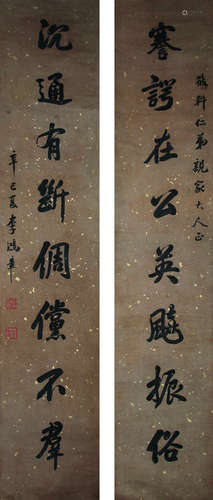 軒仁弟親家大人正
謇諤在公英飈振俗
沉通有斷倜儻不羣
辛巳夏李鴻章